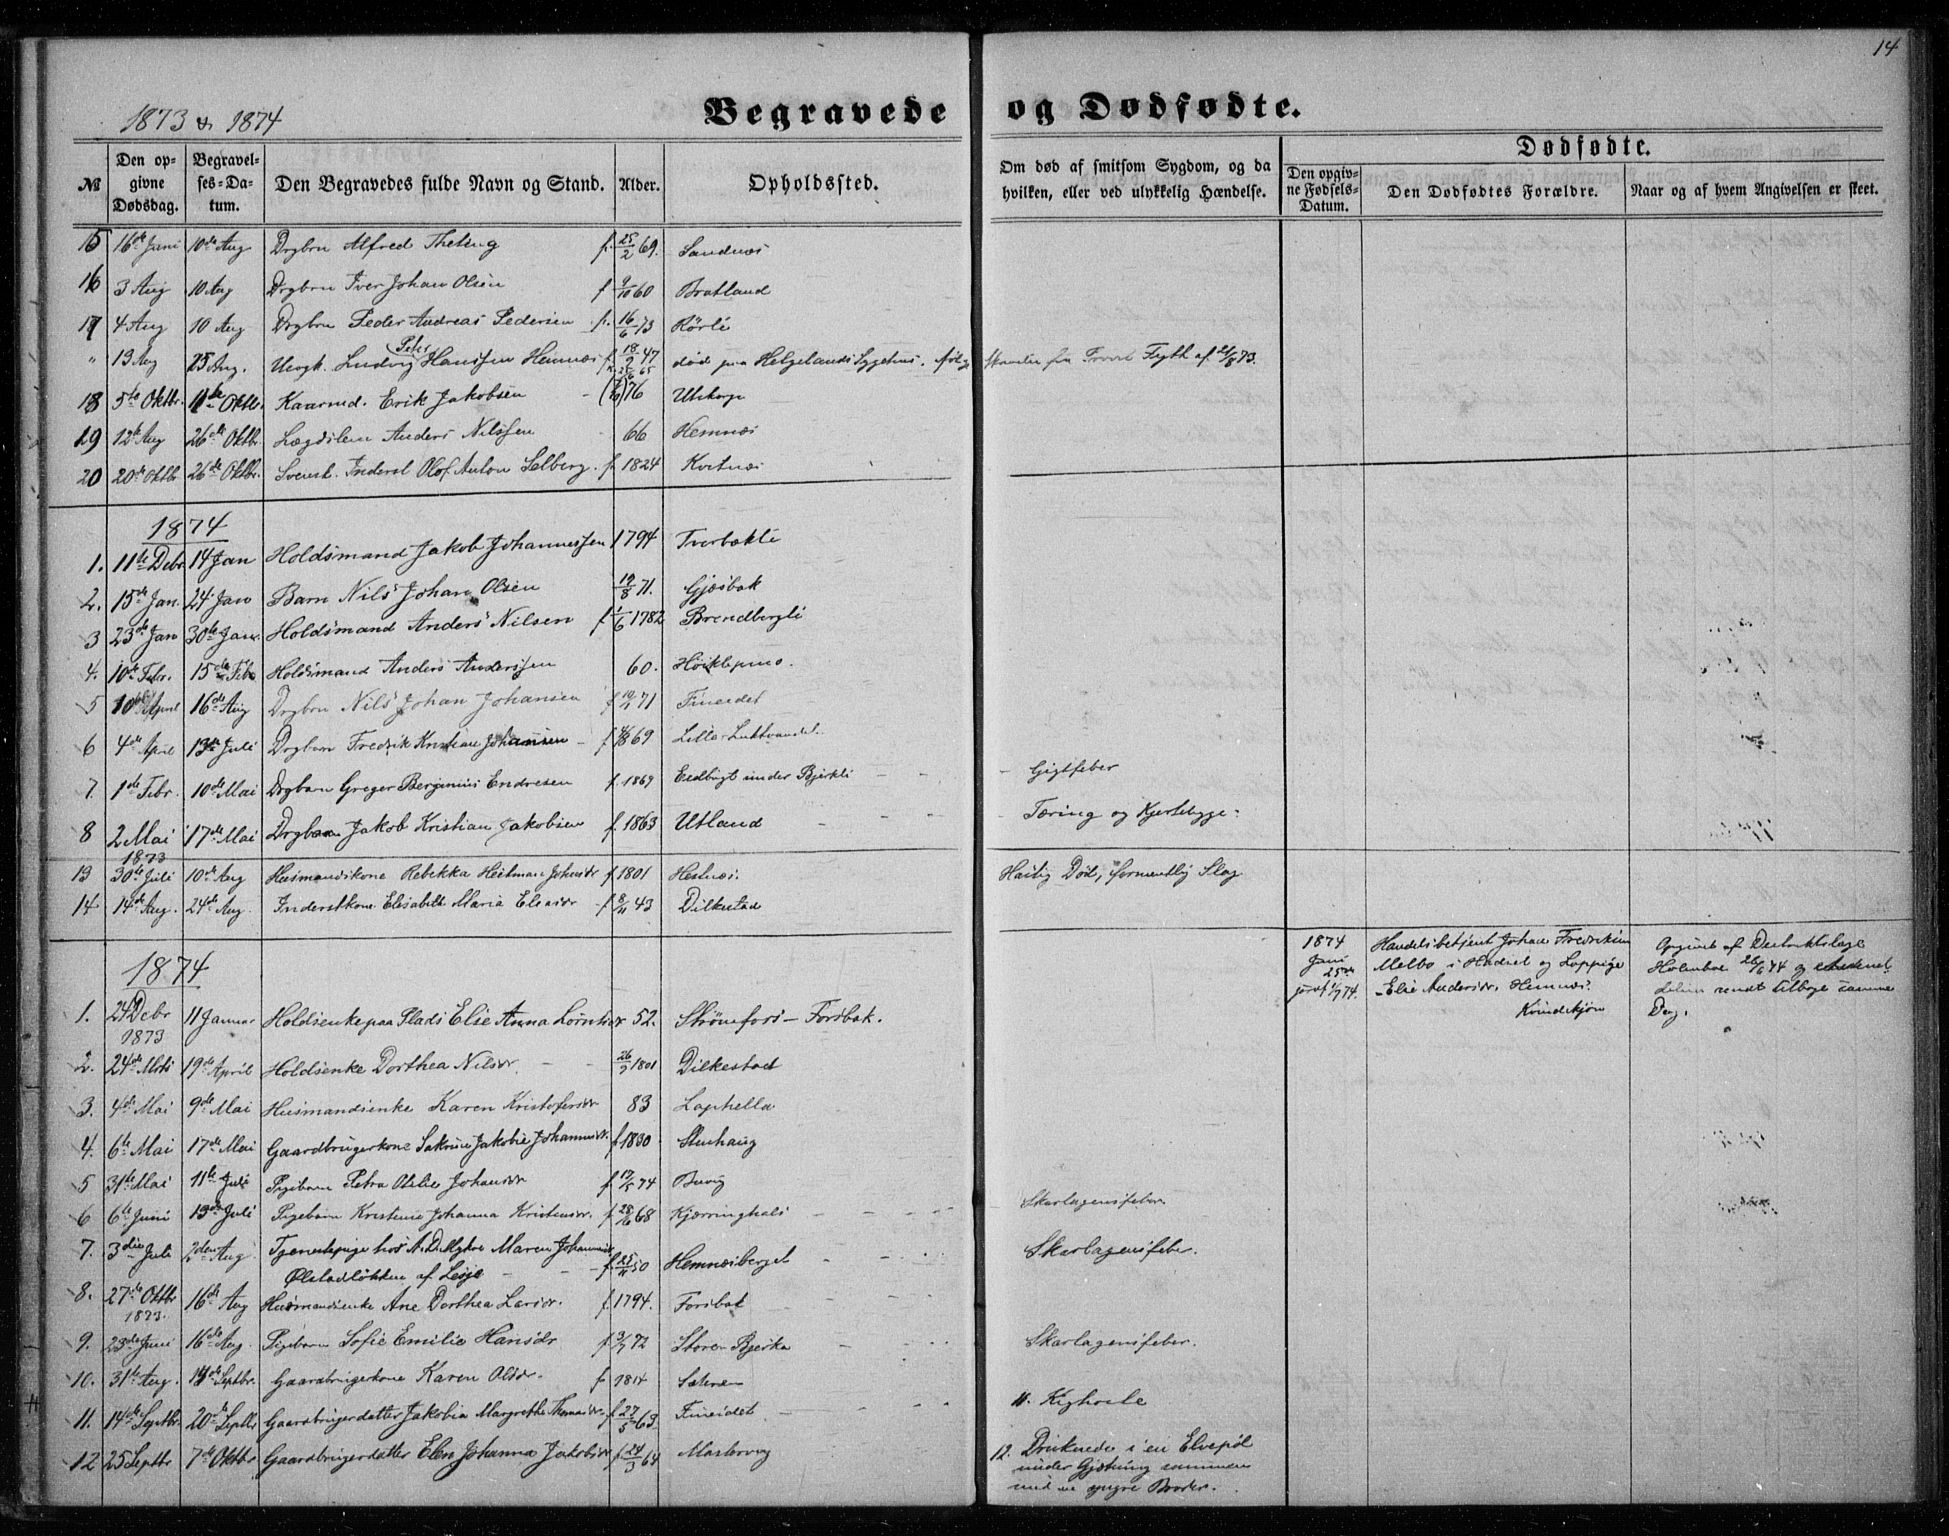 14
1873 & 1874
Begravede og Dødfødte.
№
Den opgivne Dødsdag.
Begravelses-Datum.
Den Begravedes fulde Navn og Stand.
Alder.
Opholdssted.
Om død af smitsom Sygdom, og da hvilken, eller ved ulykkelig Hændelse.
Dødfødte.
Den opgivne Fødsels-Datum.
Den Dødfødtes Forældre.
Naar og af hvem Angivelsen er skeet.
15 16de Juni 10de Aug Drgbrn Alfred Theting f. 25/2 69. Sandnæs
16 3 Aug 10 Aug Drgbrn Iver Johan Olsen f 9/10 60 Bratland
17 4 Aug 10 Aug Drgbrn Peder Andreas Pedersen f. 16/6 73 Rørli
" 13 Aug 25 Aug. Ungk. Ludvig Peter Hanssen Hemnæs f. 18/2 47 død paa Helgelands Sygehus.
18 5te Oktbr. 11te Oktbr. Kaarmd. Erik Jakobsen 76 Utskarpe
19 12te Aug 26de Oktbr. Lægdslem Anders Nilssen 66 Hemnæs
20 20de Oktbr 26de Oktbr. Svensk. Inderst Olof Anton Selberg. f. 1824 Kvitnæs
1874
1. 11te Debr 14 Jan Holdsmand Jakob Johannessen 1794 Tverbakli
2. 15de Jan. 24 Jan Barn Nils Johan Olsen 19/8 71. Gjæsbak
3 23de Jan 30te Jan. Holdsmand Anders Nilsen f 1/6 1782 Brendbergli
4. 10de Febr. 15de Feb Holdsmand Anders Anderssen 60.
5 10de April 16de Aug Drgbrn Nils Johan Johansen f 71 Fineidet
6 4de April 13de Juli Drgbarn Fredrik Kristian Johansen f 69 Lille-Luktvandet.
7. 1de Febr. 10de Mai Drgbarn Greger Berginius Endresen f. 1869 Eidbugt under Bjerkli Gigtfeber
8 2 Mai 17de Mai Drgbarn Jakob Kristian Jakobsen f. 1863 Utland Tæring og Kjertelsyge.
1873
13 30te Juli 10de Aug Husmandskone Rebekka Heitman Johnsdr f. 1801 Hestnæs. Hastig Død, formentlig Slag
14 14de Aug. 24de Aug. Inderstkone Elisabeth Maria Eliasdr f 8/11 43 Dilkestad
1874
1. 24 Debr 1873 11 Januar Holdsenke paa Plads Else Anna Lorntsdr 52. Strømfors - Forsbak.
1874 Juni 25de
Handelsbetjent Johan Fredriksen
Melbo i Hadsel og Loppige
Elise Andersdr. Hemnæs.
Kvindekjøn
Opgivet af Distriktslæge
Holmboe 26/6 74 og
sendt tilbage samme
Dag.
2. 24de Mts 19de April Holdsenke Dorthea Nilsdr 1801 Dilkestad
3. 4de Mai 9de Mai Husmandsenke Karen Kristofersdr 83 Laphella
4. 6te Mai 17de Mai Gaardbrugerkone Sakrine Jakobie Johannesdr. f 1830 Stenhaug
5 31te Mai 11te Juli Pigebarn Petra Otelie Johansdr f 17/5 74 Buvig
6 6te Juni 13de Juli Pigebarn Kristine Johanna Kristensdr. f 68 Kjærringhals Skarlagensfeber
7. 3die Juli 2den Aug. Tjenestepige hos A. D. Myhre Maren Johannesdr Ølstadløkken af Lesje f 25/11 50 Hemnæsberget Skarlagensfeber.
8. 27de Oktbr 1873. 16de Aug Husmandsenke Ane Dorthea Larsdr. f. 1794. Forsbak
9. 23de Juni 16de Aug. Pigebarn Sofie Emilie Hansdr f 3/7 72 Store-Bjerka Skarlagensfeber.
10. 31te Aug. 13de Septbr. Gaardbrugerkone Karen Olsdr. f 1814
11. 14de Septbr. 20de Septbr Gaardbrugerdatter Jakobia Margrethe Thomasdr. f. 27/5 63 Fineidet 11. Kighoste
12 25 Septbr 7de Oktbr Gaardbrugerdatter Elen Johanna Jakobsdr f 24/3 64 Mastervig 12. Druknede i en Elvepøl
under Gjætning sammen
med en yngre Broder.